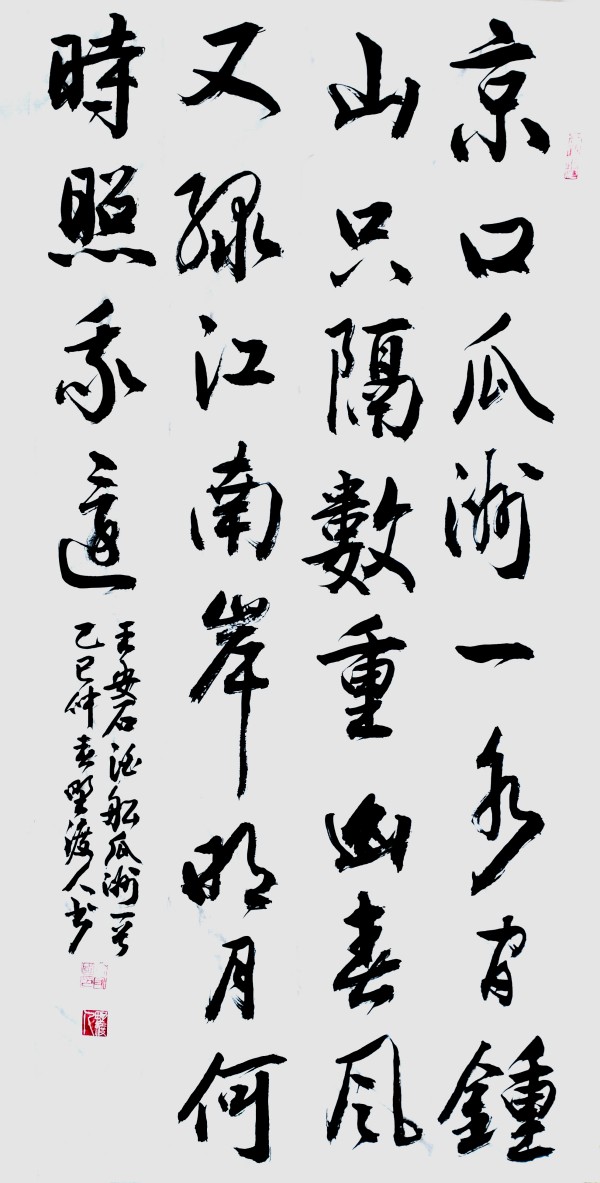 京口瓜洲一水間鍾
山只隔數重春風
又綠江南岸明月何
時照我還
王安石泊船瓜洲一首
乙巳仲春野渡人书